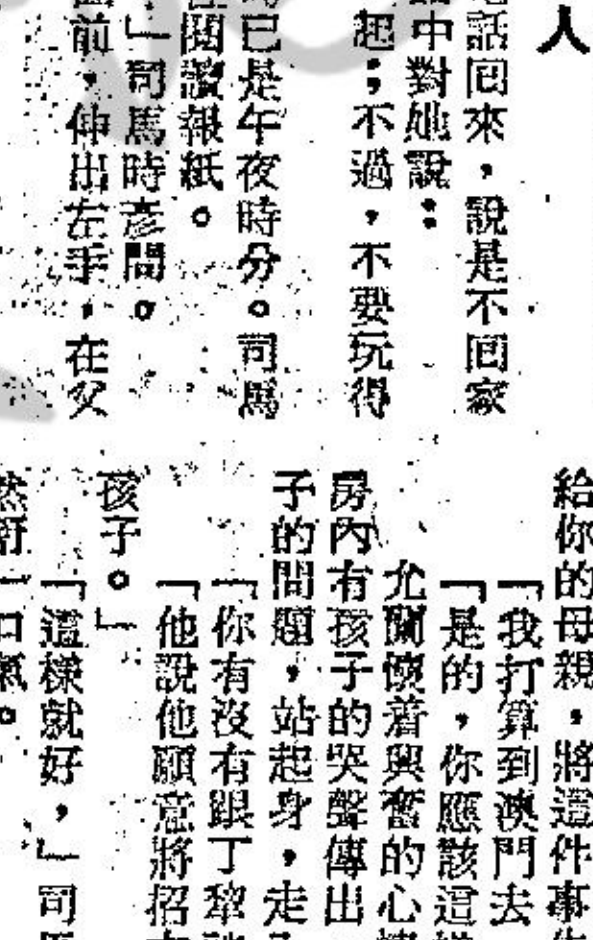 人
話回來，說是不回家
中對她說：
起；不過，不要玩得
已是午夜時分。司馬
閱讀報紙。
」司馬時彥問。
前，伸出左手，在父
給你的母親，將這件事
「我打算到澳門去
「是的，你應該這
允關懷着興奮的心
房內有孩子的哭聲傳出
子的問題，站起身，走
「你有沒有跟丁犂
「他說他願意將招
孩子。」
「這樣就好，」司
舒一口氣。